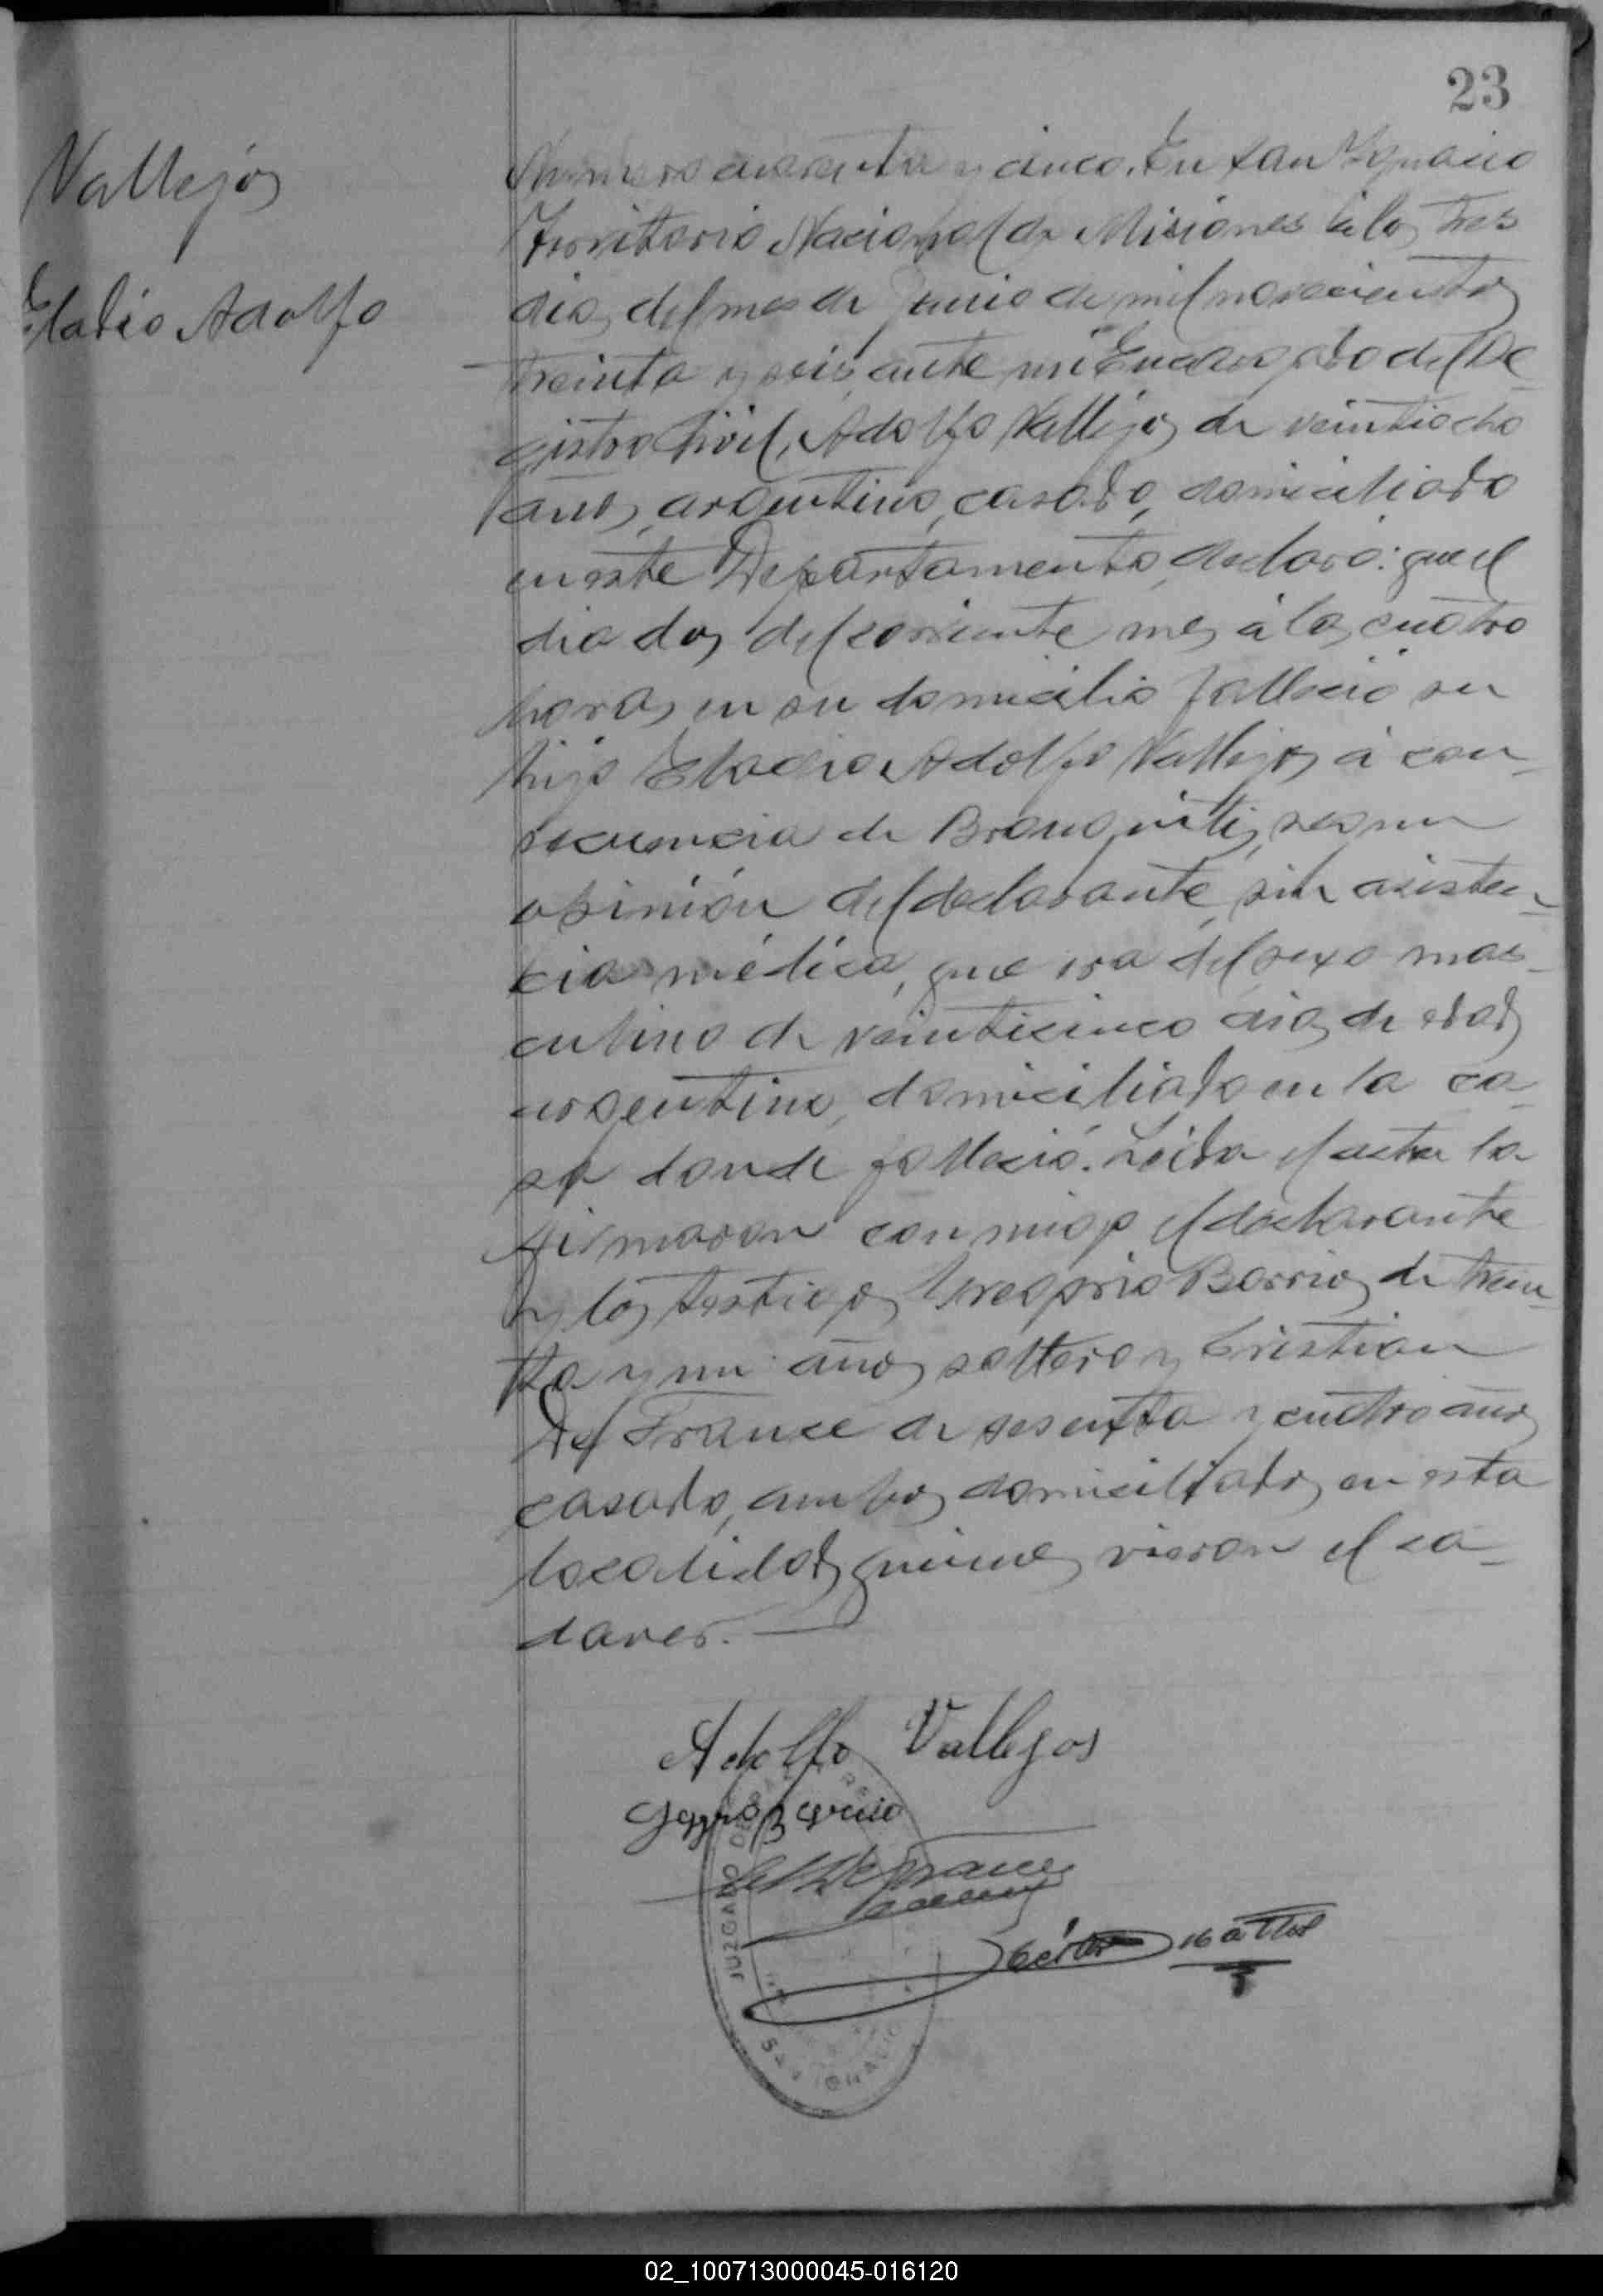 23
Vallejos
Eladio Adolfo
Número cuarenta y cinco. En San Ygnacio
Territorio Nacional de Misiones á los tres
dias del mes de Junio de mil novecientos
treinta y seis ante mi Encargado del Re-
gistro Civil, Adolfo Vallejos de veintiocho
años, argentino, casado, domiciliado
en este Departamento, declaró: que el
dia dos del corriente mes á las cuatro
horas en su domicilio falleció su
hijo Eladio Adolfo Vallejos á con-
secuencia de Bronquitis, segun
opinión del declarante, sin asisten-
cia médica, que era del sexo mas-
culino de veinticinco dias de edad,
argentino, domiciliado en la ca-
sa donde falleció. Leida el acta la
firmaron conmigo el declarante
y los testigos Gregorio Barrios de trein-
ta y un años, soltero y Cristian
Del France de sesenta y cuatro años
casado, ambos domiciliados en esta
localidad, quienes vieron el ca-
daver.
Adolfo Vallejos
JUZGADO DE PAZ
SAN IGNACIO
02_100713000045-016120